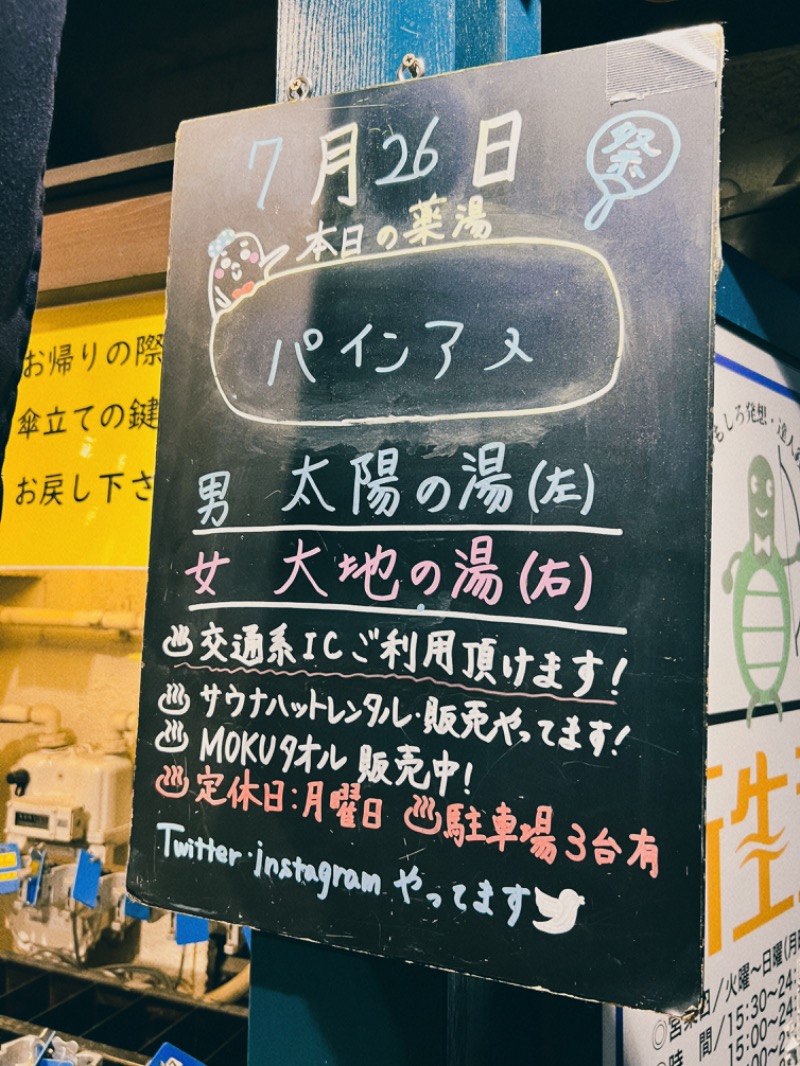 7月26日
祭
本日の薬湯
パインアメ
男 太陽の湯(左)
女 大地の湯(右)
♨交通系ICご利用頂けます!
♨サウナハットレンタル・販売やってます!
♨MOKUタオル 販売中!
♨定休日:月曜日 ♨駐車場3台有
Twitter・instagram やってます
お帰りの際
傘立ての鍵
お戻し下さ
もしろ発想・達人
生
◎営業日/火曜~日曜(月
◎時 間/15:30~24:
15:00~24: